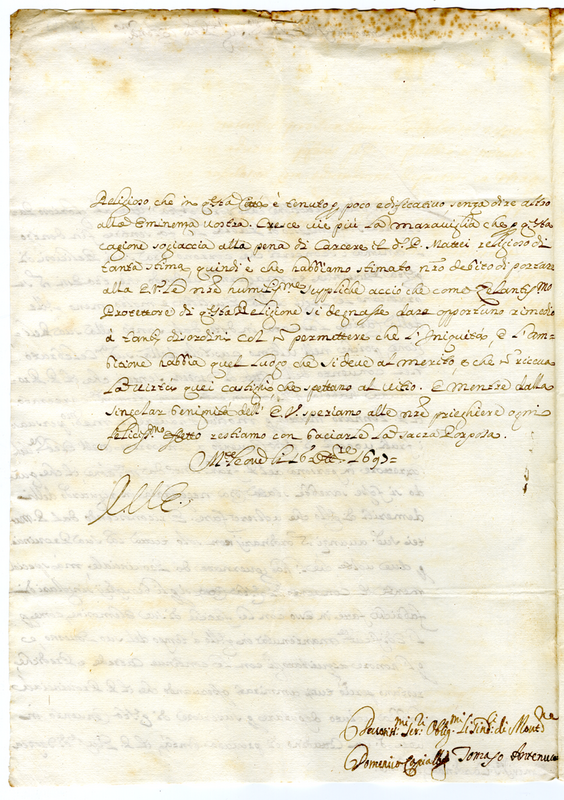 Religioso, che in q̃sta Città è tenuto p̱ poco edificativo senza dire altro
alla Eminenza Vostra. Cresce vie più la maraviglia che p̱ q̃sta
cagione sogiaccia alla pena di Carcere il d.º P. Mattei religioso di
tanta stima, quindi è che habbiamo stimato nr̃o debito di portare
alla E. V. le nr̃e humiliss.me suppliche acciò che come Zelantiss.mo
Protettore di q̃sta Religione si degnasse dare opportuno rimedio
à tanti disordini col ñ permettere che l'Iniquità, e l'am-
bitione habbia quel luogo che si deve al merito, e che ñ riceva
la virtù quei castighi che spettano al vitio. E mentre dalla
singolar benignità dell' E. V. speriamo alle nr̃e prieghiere ogni
felicis.mo effetto restiamo con baciarle la sacra Porpora.
li 16 1697
Devotiss.mi Ser.ri Oblig.mi li Sind.ci di
Domenico Tomaso